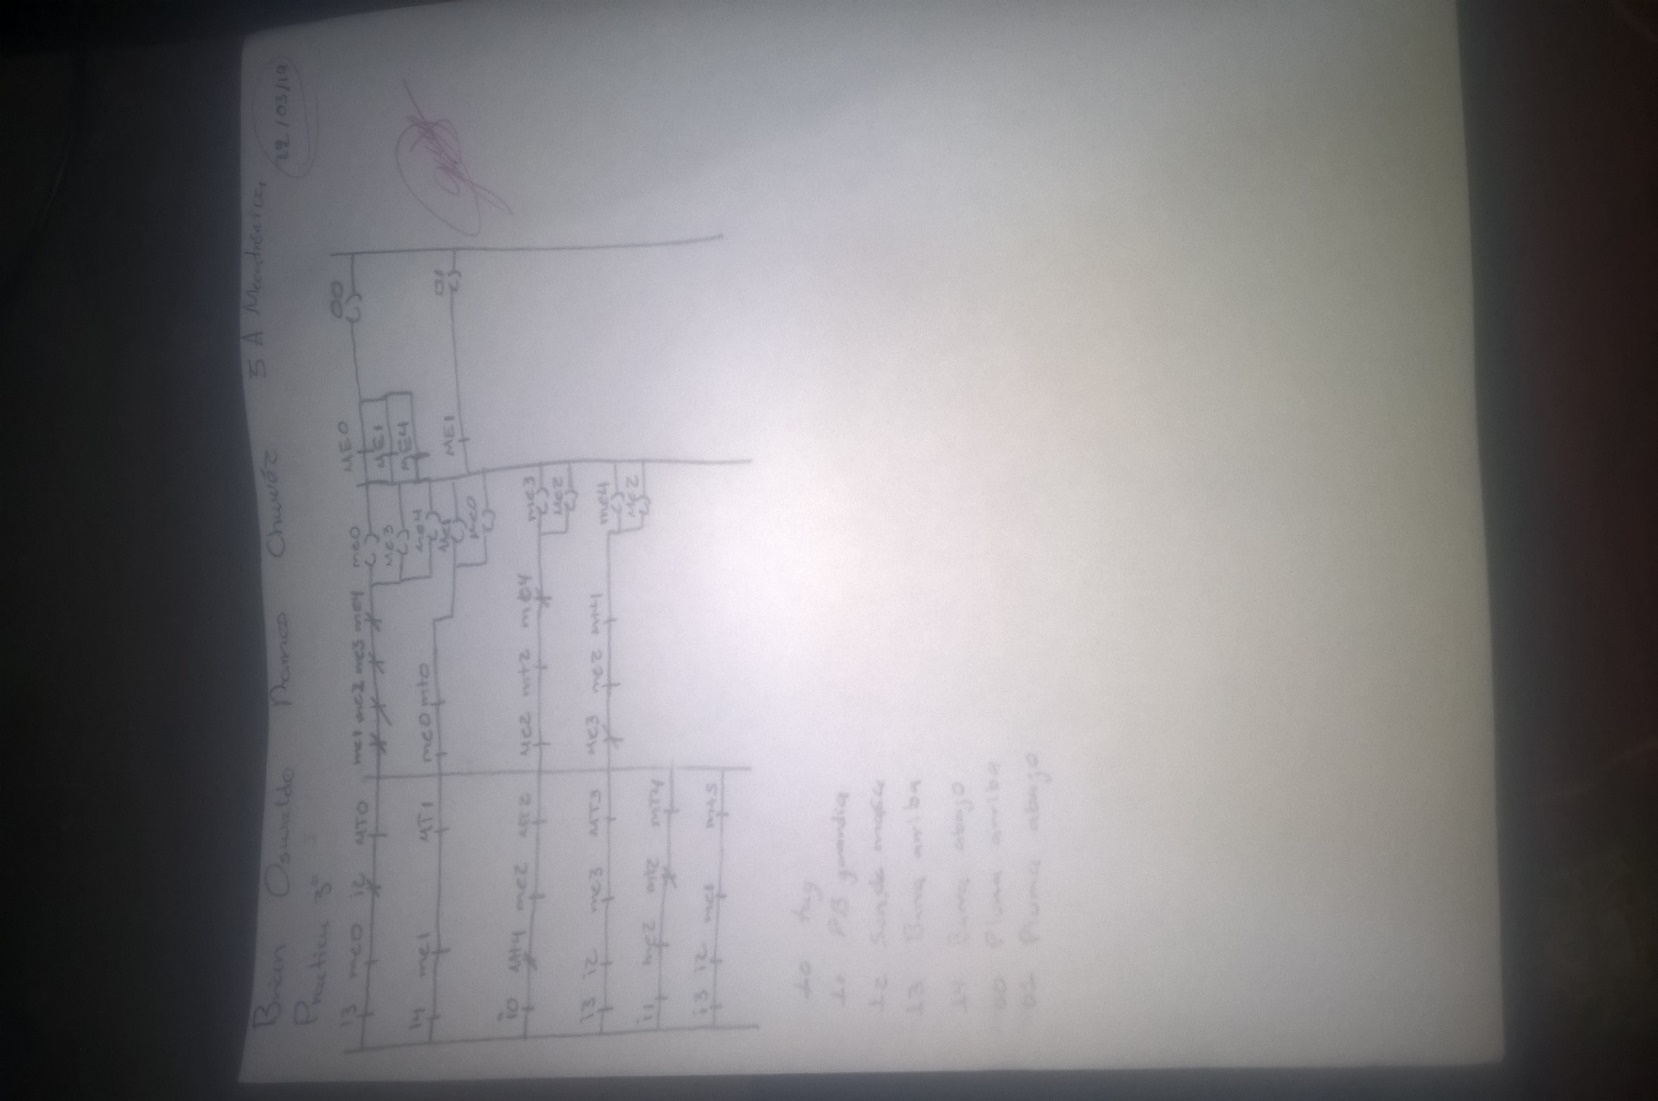 Brian Oswaldo Ramco Chuvéz 5 A Mecatronica
Practica 3° 22/03/19
i3 me0 i2 MT0 me1 me2 me3 me4 me0 ME0 O0
me3 ME1
me4 ME4
i4 me1 MT1 me0 mt0 me1 ME1 O1
me0
i0 mt4 me2 MT2 me2 mt2 me4 me3
me2
i3 i2 me3 MT3 me3 me2 mt4 me4
me2
i1 me2 mt2 MT4
i3 i2 me1 mt5
I0 Tag
PB guardia
I2
I3 Barra arriba
I4 Barra abajo
O0 Pluma arriba
Pluma abajo